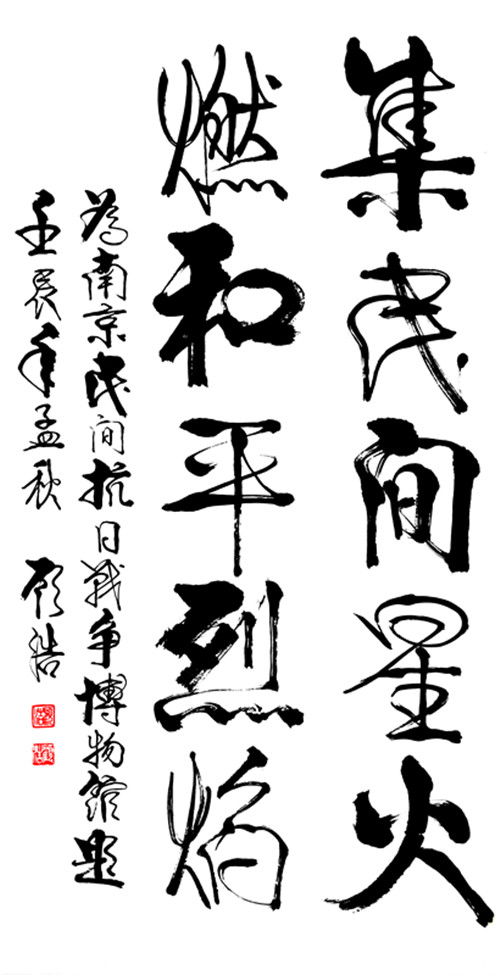 集民间星火
燃和平烈焰
为南京民间抗日战争博物馆题
壬辰年孟秋 顾浩